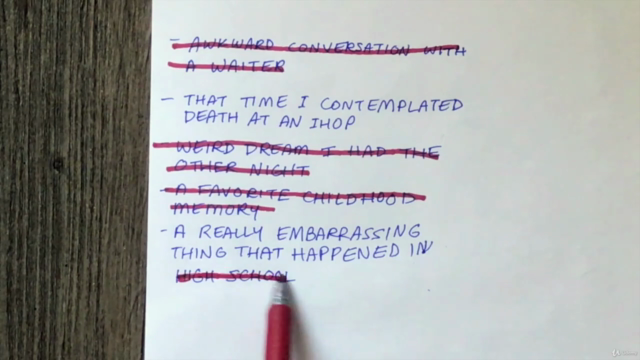 - AWKWARD CONVERSATION WITH
A WAITER
- THAT TIME I CONTEMPLATED
DEATH AT AN IHOP
- WEIRD DREAM I HAD THE
OTHER NIGHT
- A FAVORITE CHILDHOOD
MEMORY
- A REALLY EMBARRASSING
THING THAT HAPPENED IN
HIGH SCHOOL